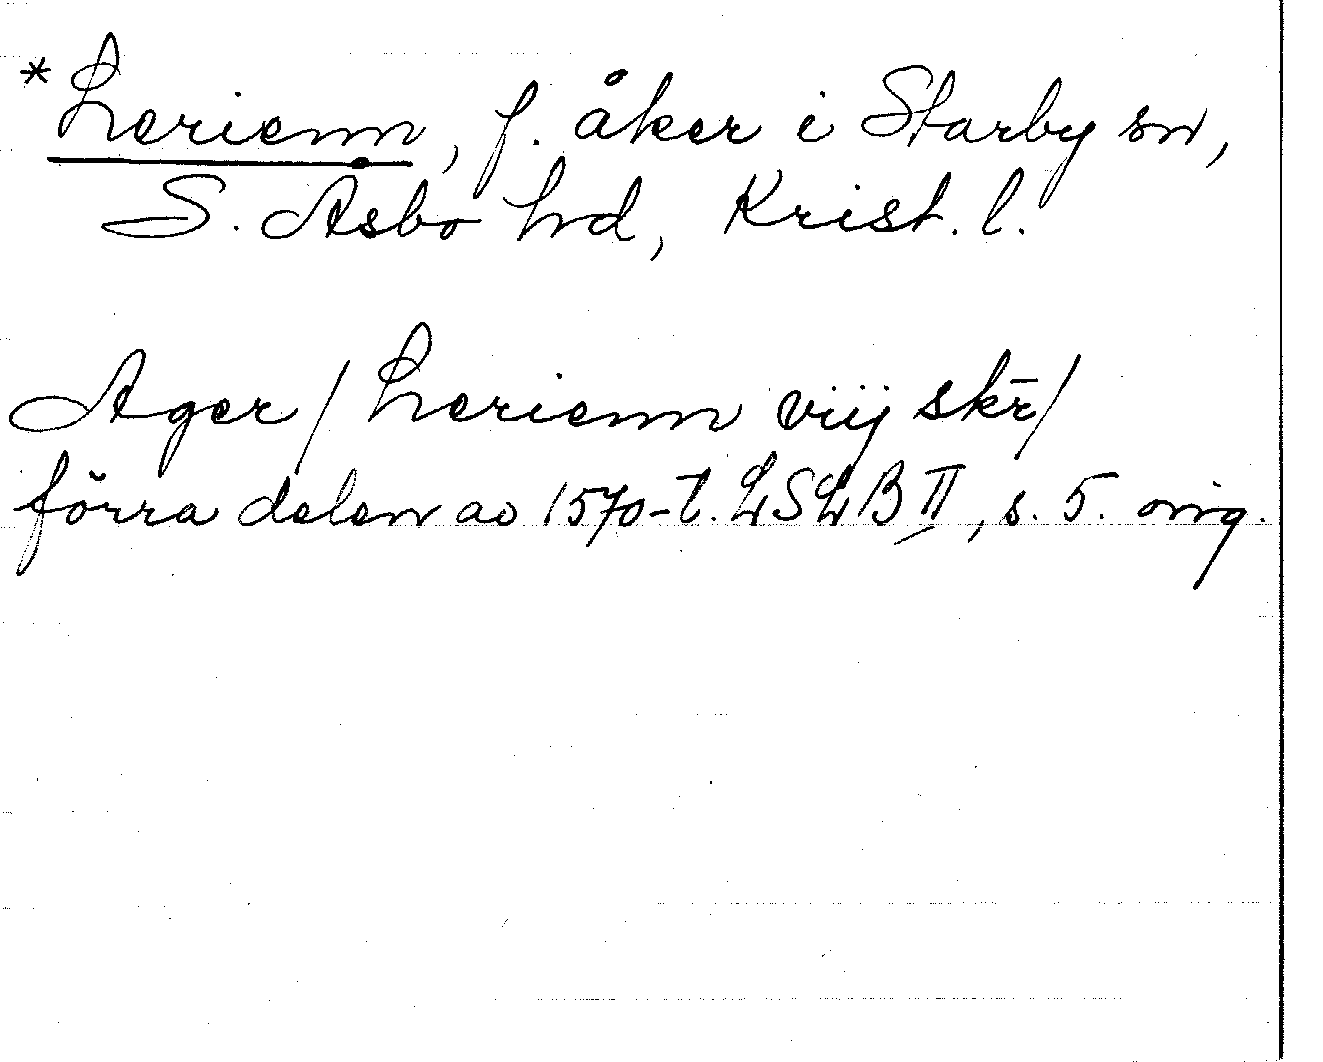 *Lerienn, f. åker i Starby sn,
S. Åsbo hd, Krist. l.
Ager/ Lerienn viij skr̄/
förra delen av 1570-t. LSLB II, s. 5. orig.